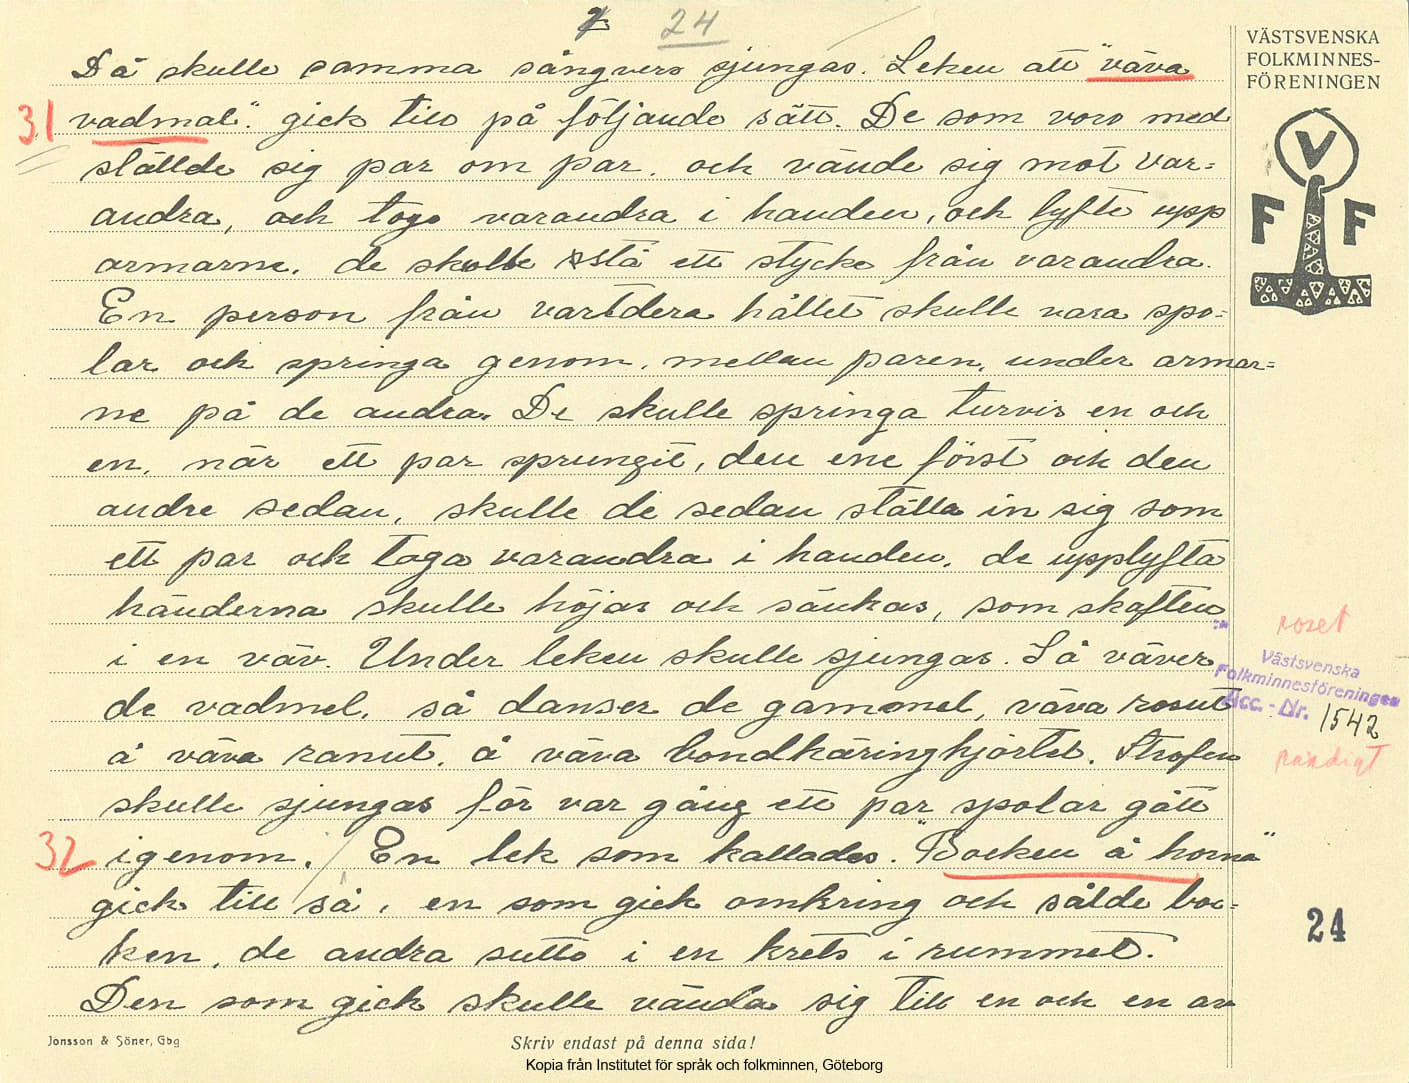 24
VÄSTSVENSKA
FOLKMINNES-
FÖRENINGEN
V
F F
Då skulle samma sångvers sjungas. Leken att "väva
31 vadmal". gick till på följande sätt. De som voro med
ställde sig par om par. och vände sig mot var=
andra, och togo varandra i handen, och lyfte upp
armarne. de skulle stå ett stycke från varandra.
En person från vartdera hållet skulle vara spo=
lar och springa genom. mellan paren, under armar=
ne på de andra. De skulle springa turvis en och
en, när ett par sprungit, den ene först och den
andre sedan, skulle de sedan ställa in sig som
ett par och taga varandra i handen. de upplyfta
händerna skulle höjas och sänkas, som skaften
i en väv. Under leken skulle sjungas. Så väver
de vadmel, så danser de gammel, väva rosut
å väva ranut, å väva bondkäringkjörtel. Strofen
skulle sjungas för var gång ett par spolar gått
32 igenom. En lek som kallades. "Bocken å horna"
gick till så, en som gick omkring och sålde boc-
ken, de andra sutto i en krets i rummet.
Den som gick skulle vända sig till en och en av
roset
Västsvenska
Folkminnesföreningen
Acc. - Nr. 1542
randigt
24
Jonsson & Söner, Gbg
Skriv endast på denna sida!
Kopia från Institutet för språk och folkminnen, Göteborg